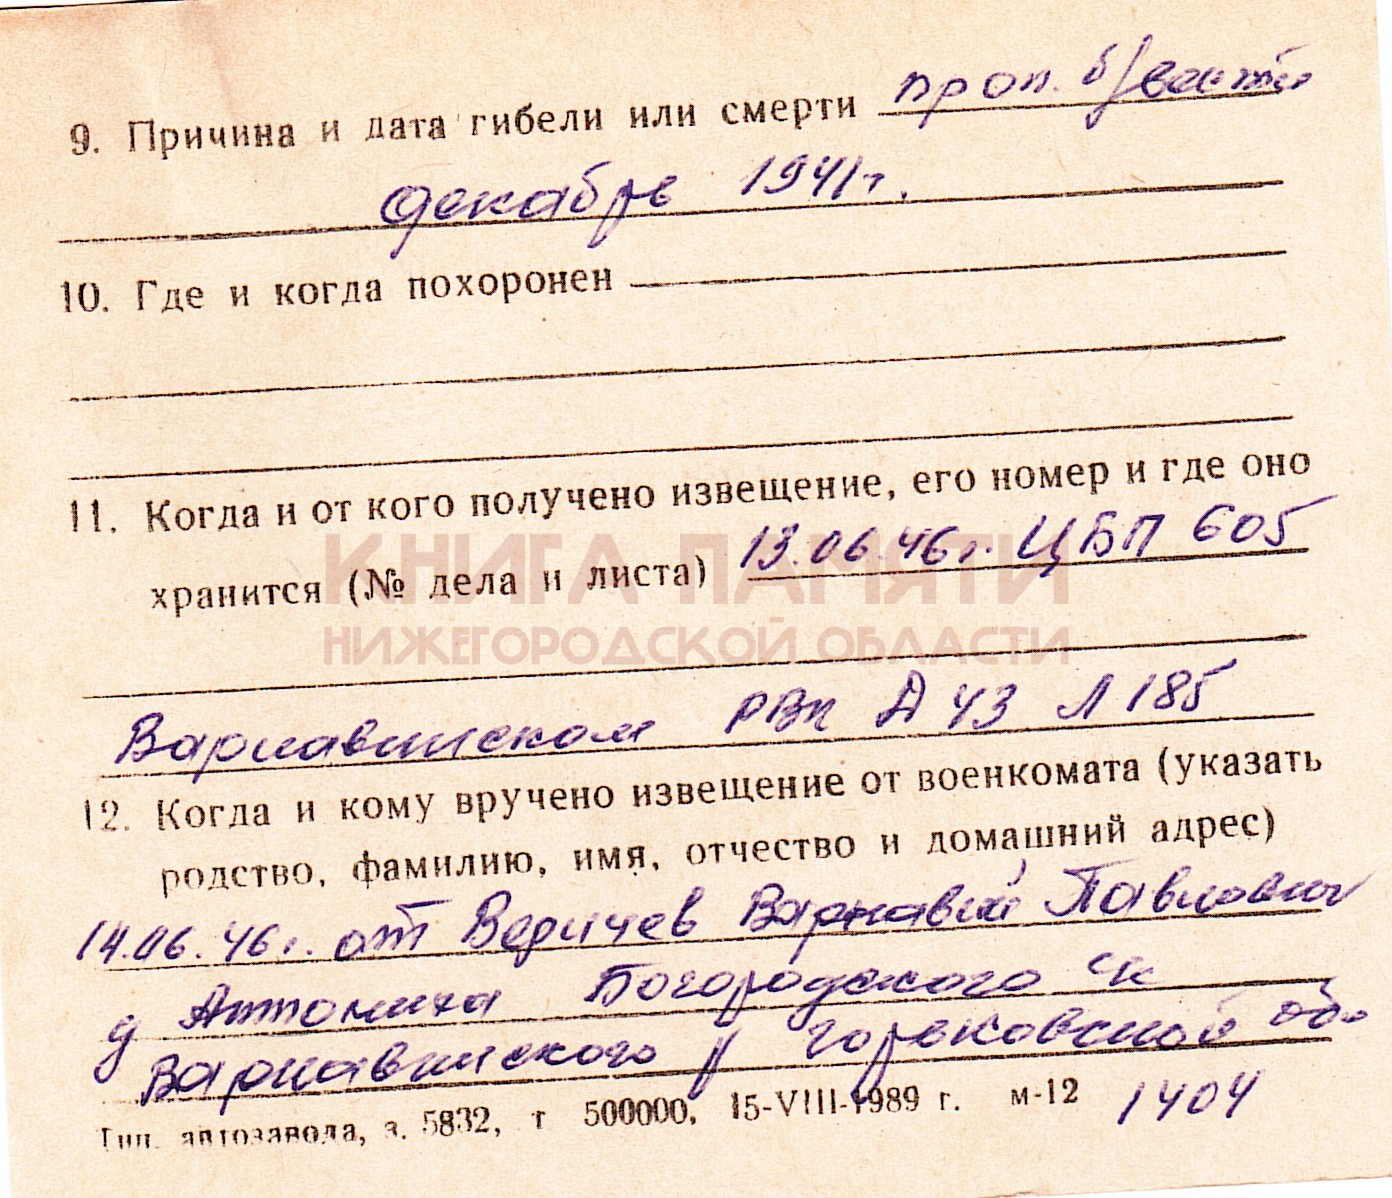 9. Причина и дата гибели или смерти проп. б/вести
декабрь 1941г.
10. Где и когда похоронен
11. Когда и от кого получено извещение, его номер и где оно
хранится (№ дела и листа) 13.06.46г. ЦБП 605
КНИГА ПАМЯТИ
НИЖЕГОРОДСКОЙ ОБЛАСТИ
Варнавинском РВК Д 43 Л 185
12. Когда и кому вручено извещение от военкомата (указать
родство, фамилию, имя, отчество и домашний адрес)
14.06.46г. от Варнавий Павлович
д Антониха Богородского с/к
Варнавинского р Горьковской об.
Тип. автозавода, з. 5832, т 500000, 15-VIII-1989 г. м-12 1404